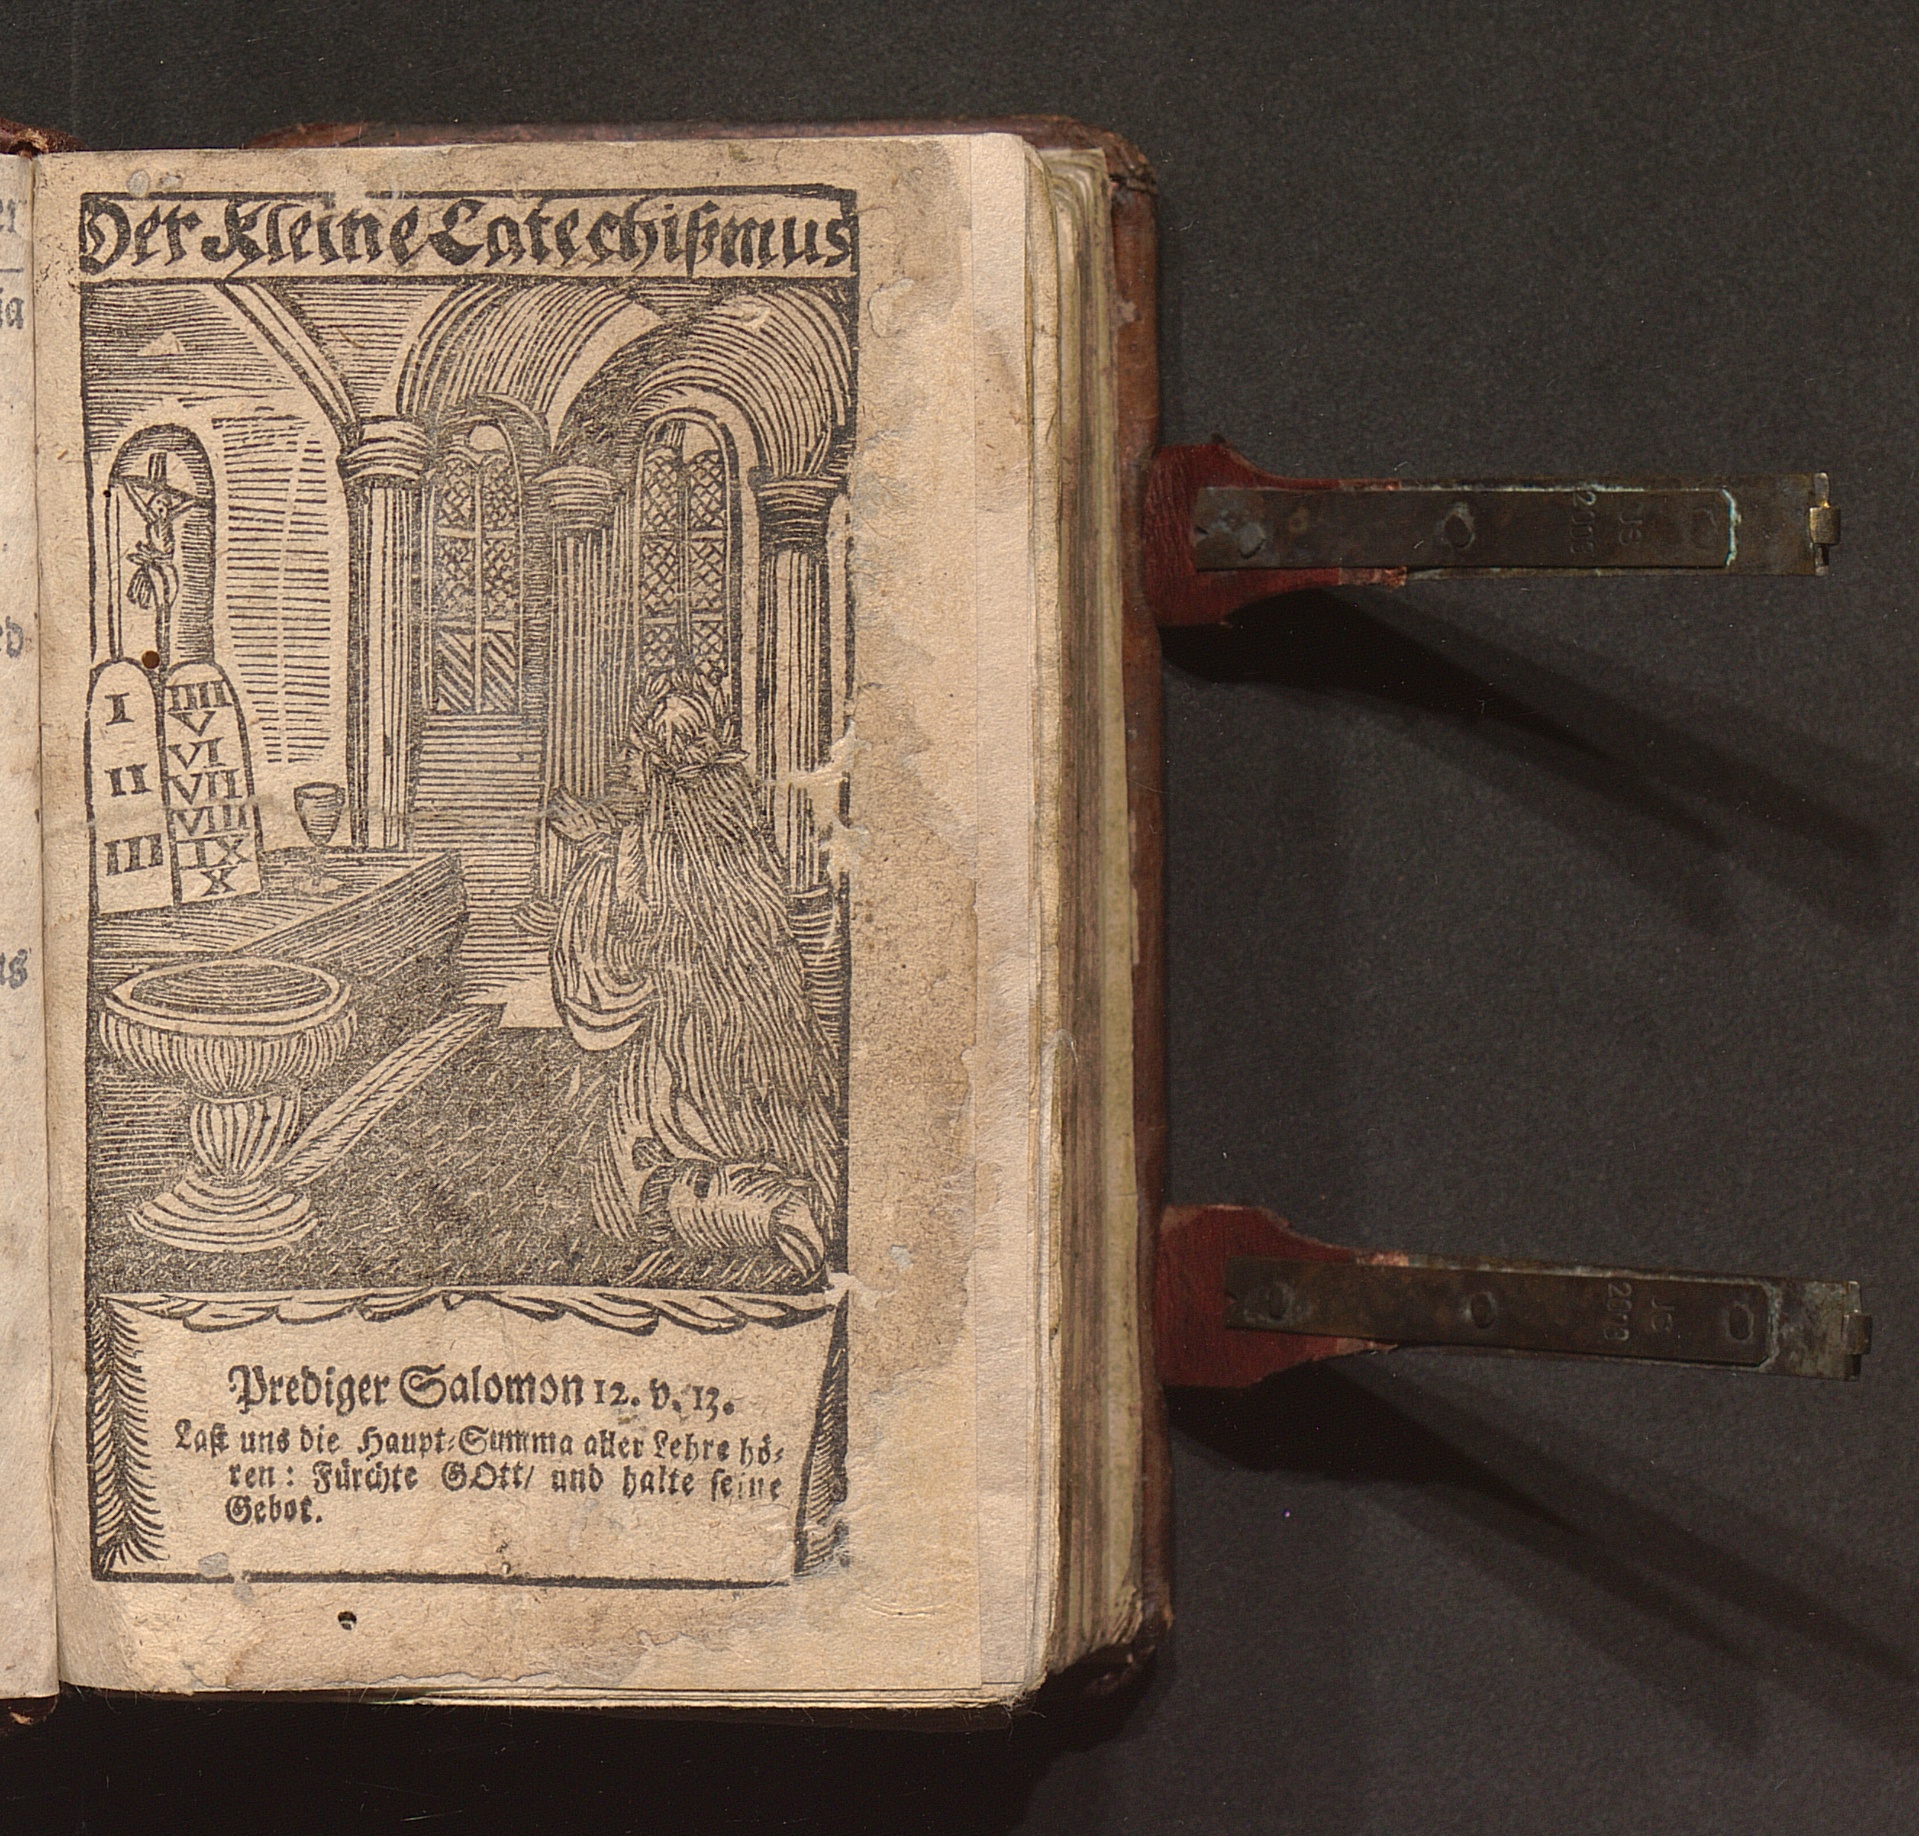 Der Kleine Catechißmus
I
II
III
IIII
V
VI
VII
VIII
IX
X
Prediger Salomon 12. v. 13.
Laßt uns die Haupt-Summa aller Lehre hö-
ren: Fürchte GOtt/ und halte seine
Gebot.
JS
2018
JS
2018